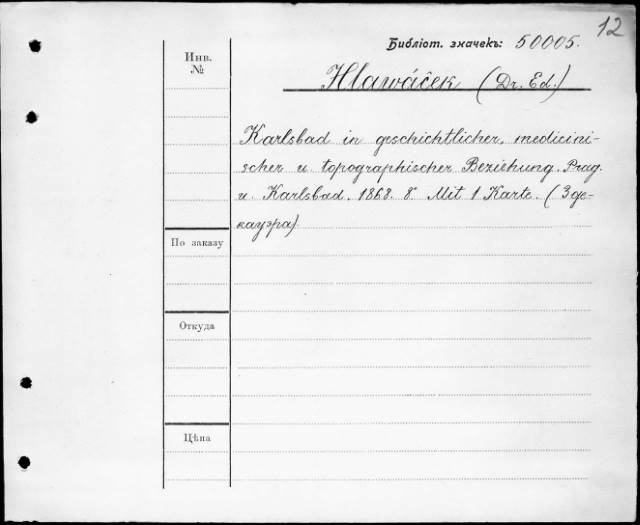 12
Библіот. значекъ: 50005.
Инв.
№
Hlawáček (Dr. Ed.)
Karlsbad in geschichtlicher, medicini-
scher u. topographischer Beziehung. Prag
u. Karlsbad. 1868. 8° Mit 1 Karte. (3 де-
кауэра).
По заказу
Откуда
Цѣна